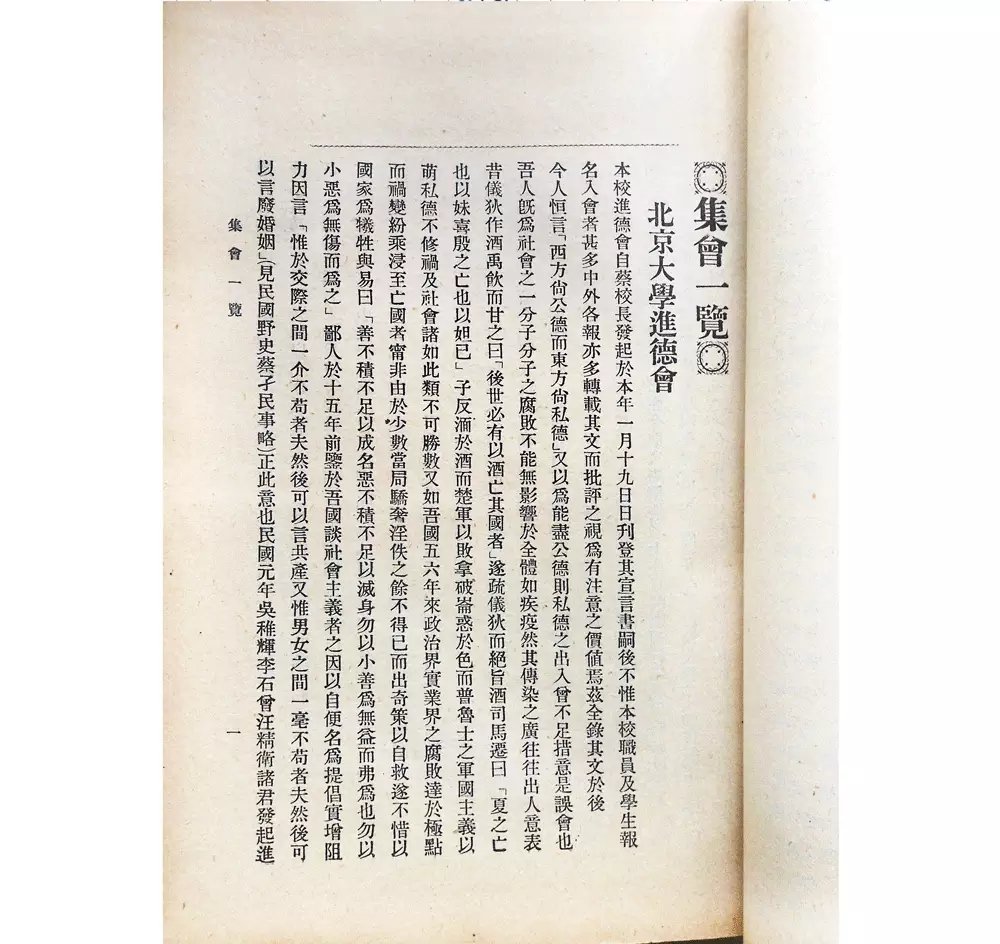 集會一覽
北京大學進德會
本校進德會自蔡校長發起於本年一月十九日日刊登其宣言書嗣後不惟本校職員及學生報
名入會者甚多中外各報亦多轉載其文而批評之視爲有注意之價値焉茲全錄其文於後
今人恒言「西方尙公德而東方尙私德」又以爲能盡公德則私德之出入曾不足措意是誤會也
吾人旣爲社會之一分子分子之腐敗不能無影響於全體如疾疫然其傳染之廣往往出人意表
昔儀狄作酒禹飮而甘之曰「後世必有以酒亡其國者」遂疏儀狄而絕旨酒司馬遷曰「夏之亡
也以妺喜殷之亡也以妲己」子反湎於酒而楚軍以敗拿破崙惑於色而普魯士之軍國主義以
萌私德不修禍及社會諸如此類不可勝數又如吾國五六年來政治界實業界之腐敗達於極點
而禍變紛乘浸至亡國者甯非由於少數當局驕奢淫佚之餘不得已而出奇策以自救遂不惜以
國家爲犧牲與易曰「善不積不足以成名惡不積不足以滅身勿以小善爲無益而弗爲也勿以
小惡爲無傷而爲之」鄙人於十五年前鑒於吾國談社會主義者之因以自便名爲提倡實增阻
力因言「惟於交際之間一介不苟者夫然後可以言共產又惟男女之間一毫不苟者夫然後可
以言廢婚姻」（見民國野史蔡孑民事略）正此意也民國元年吳稚輝李石曾汪精衛諸君發起進
集會一覽
一